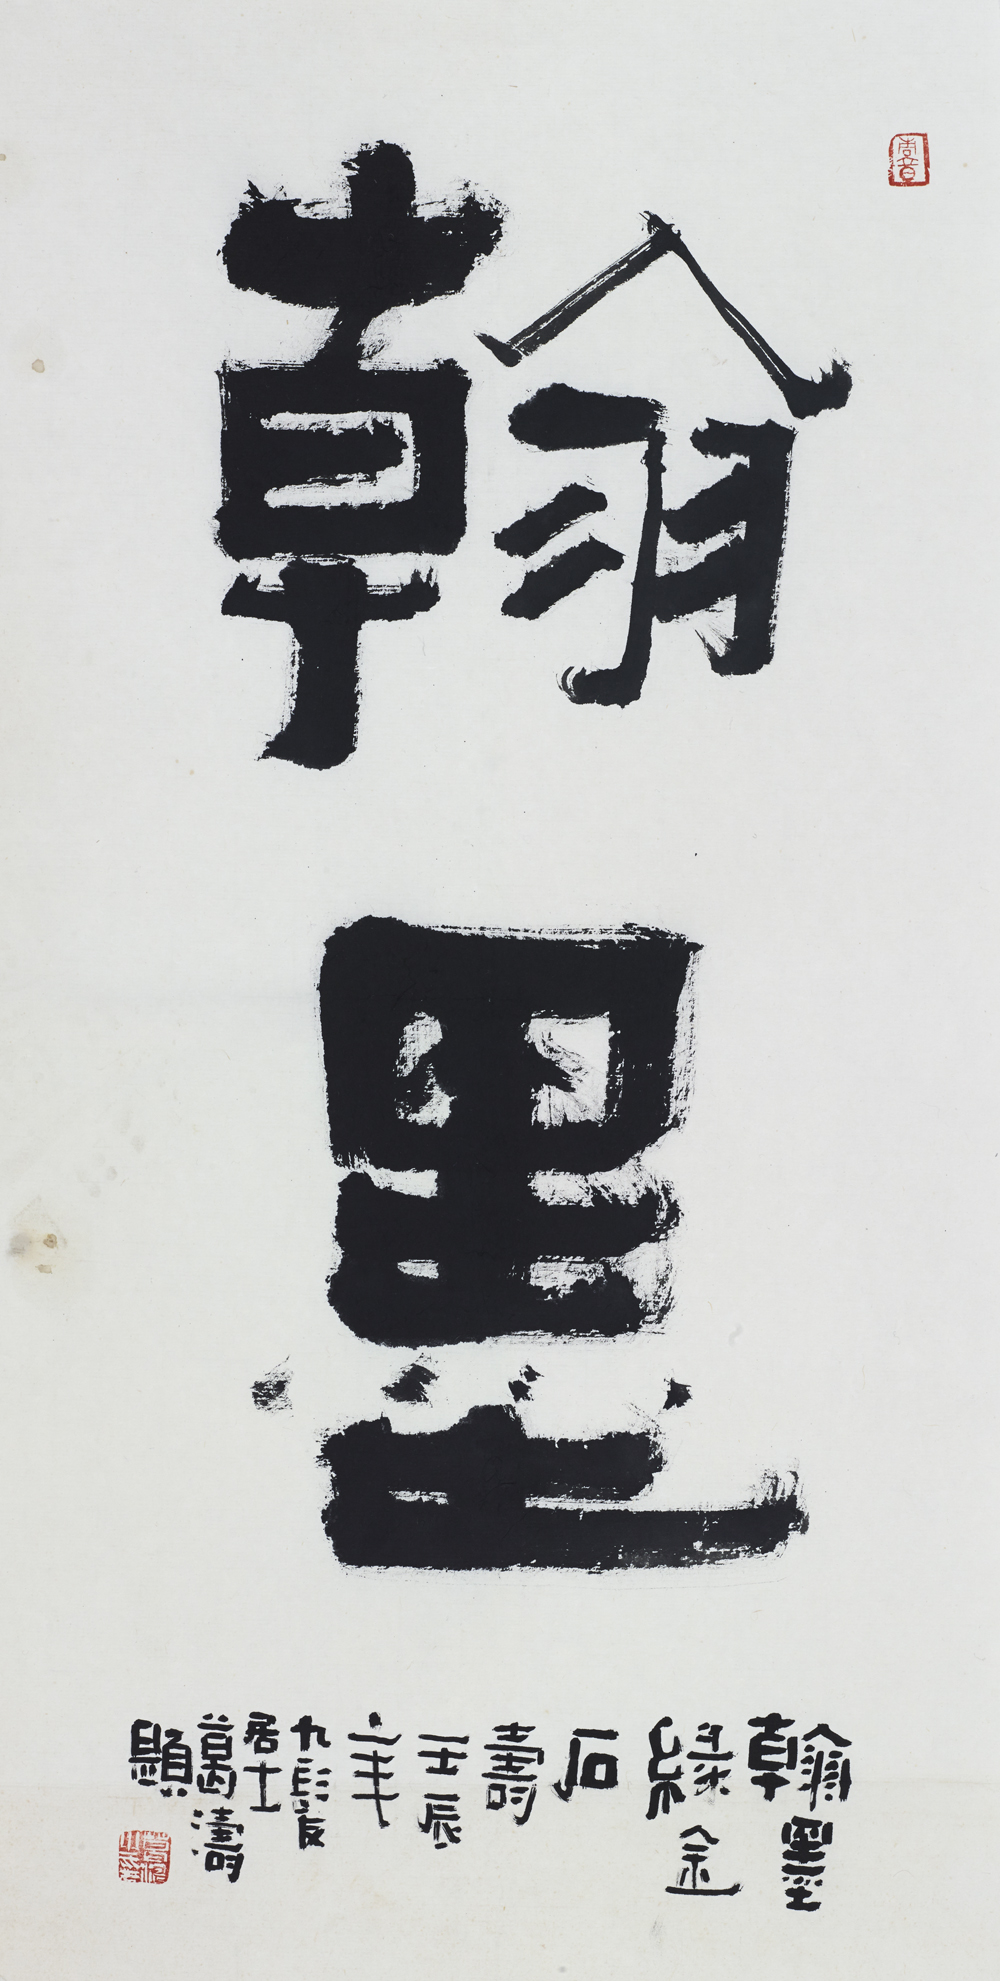 翰墨
翰墨
緣金
石
壽
壬辰
年
九髮
居士
葛濤
題